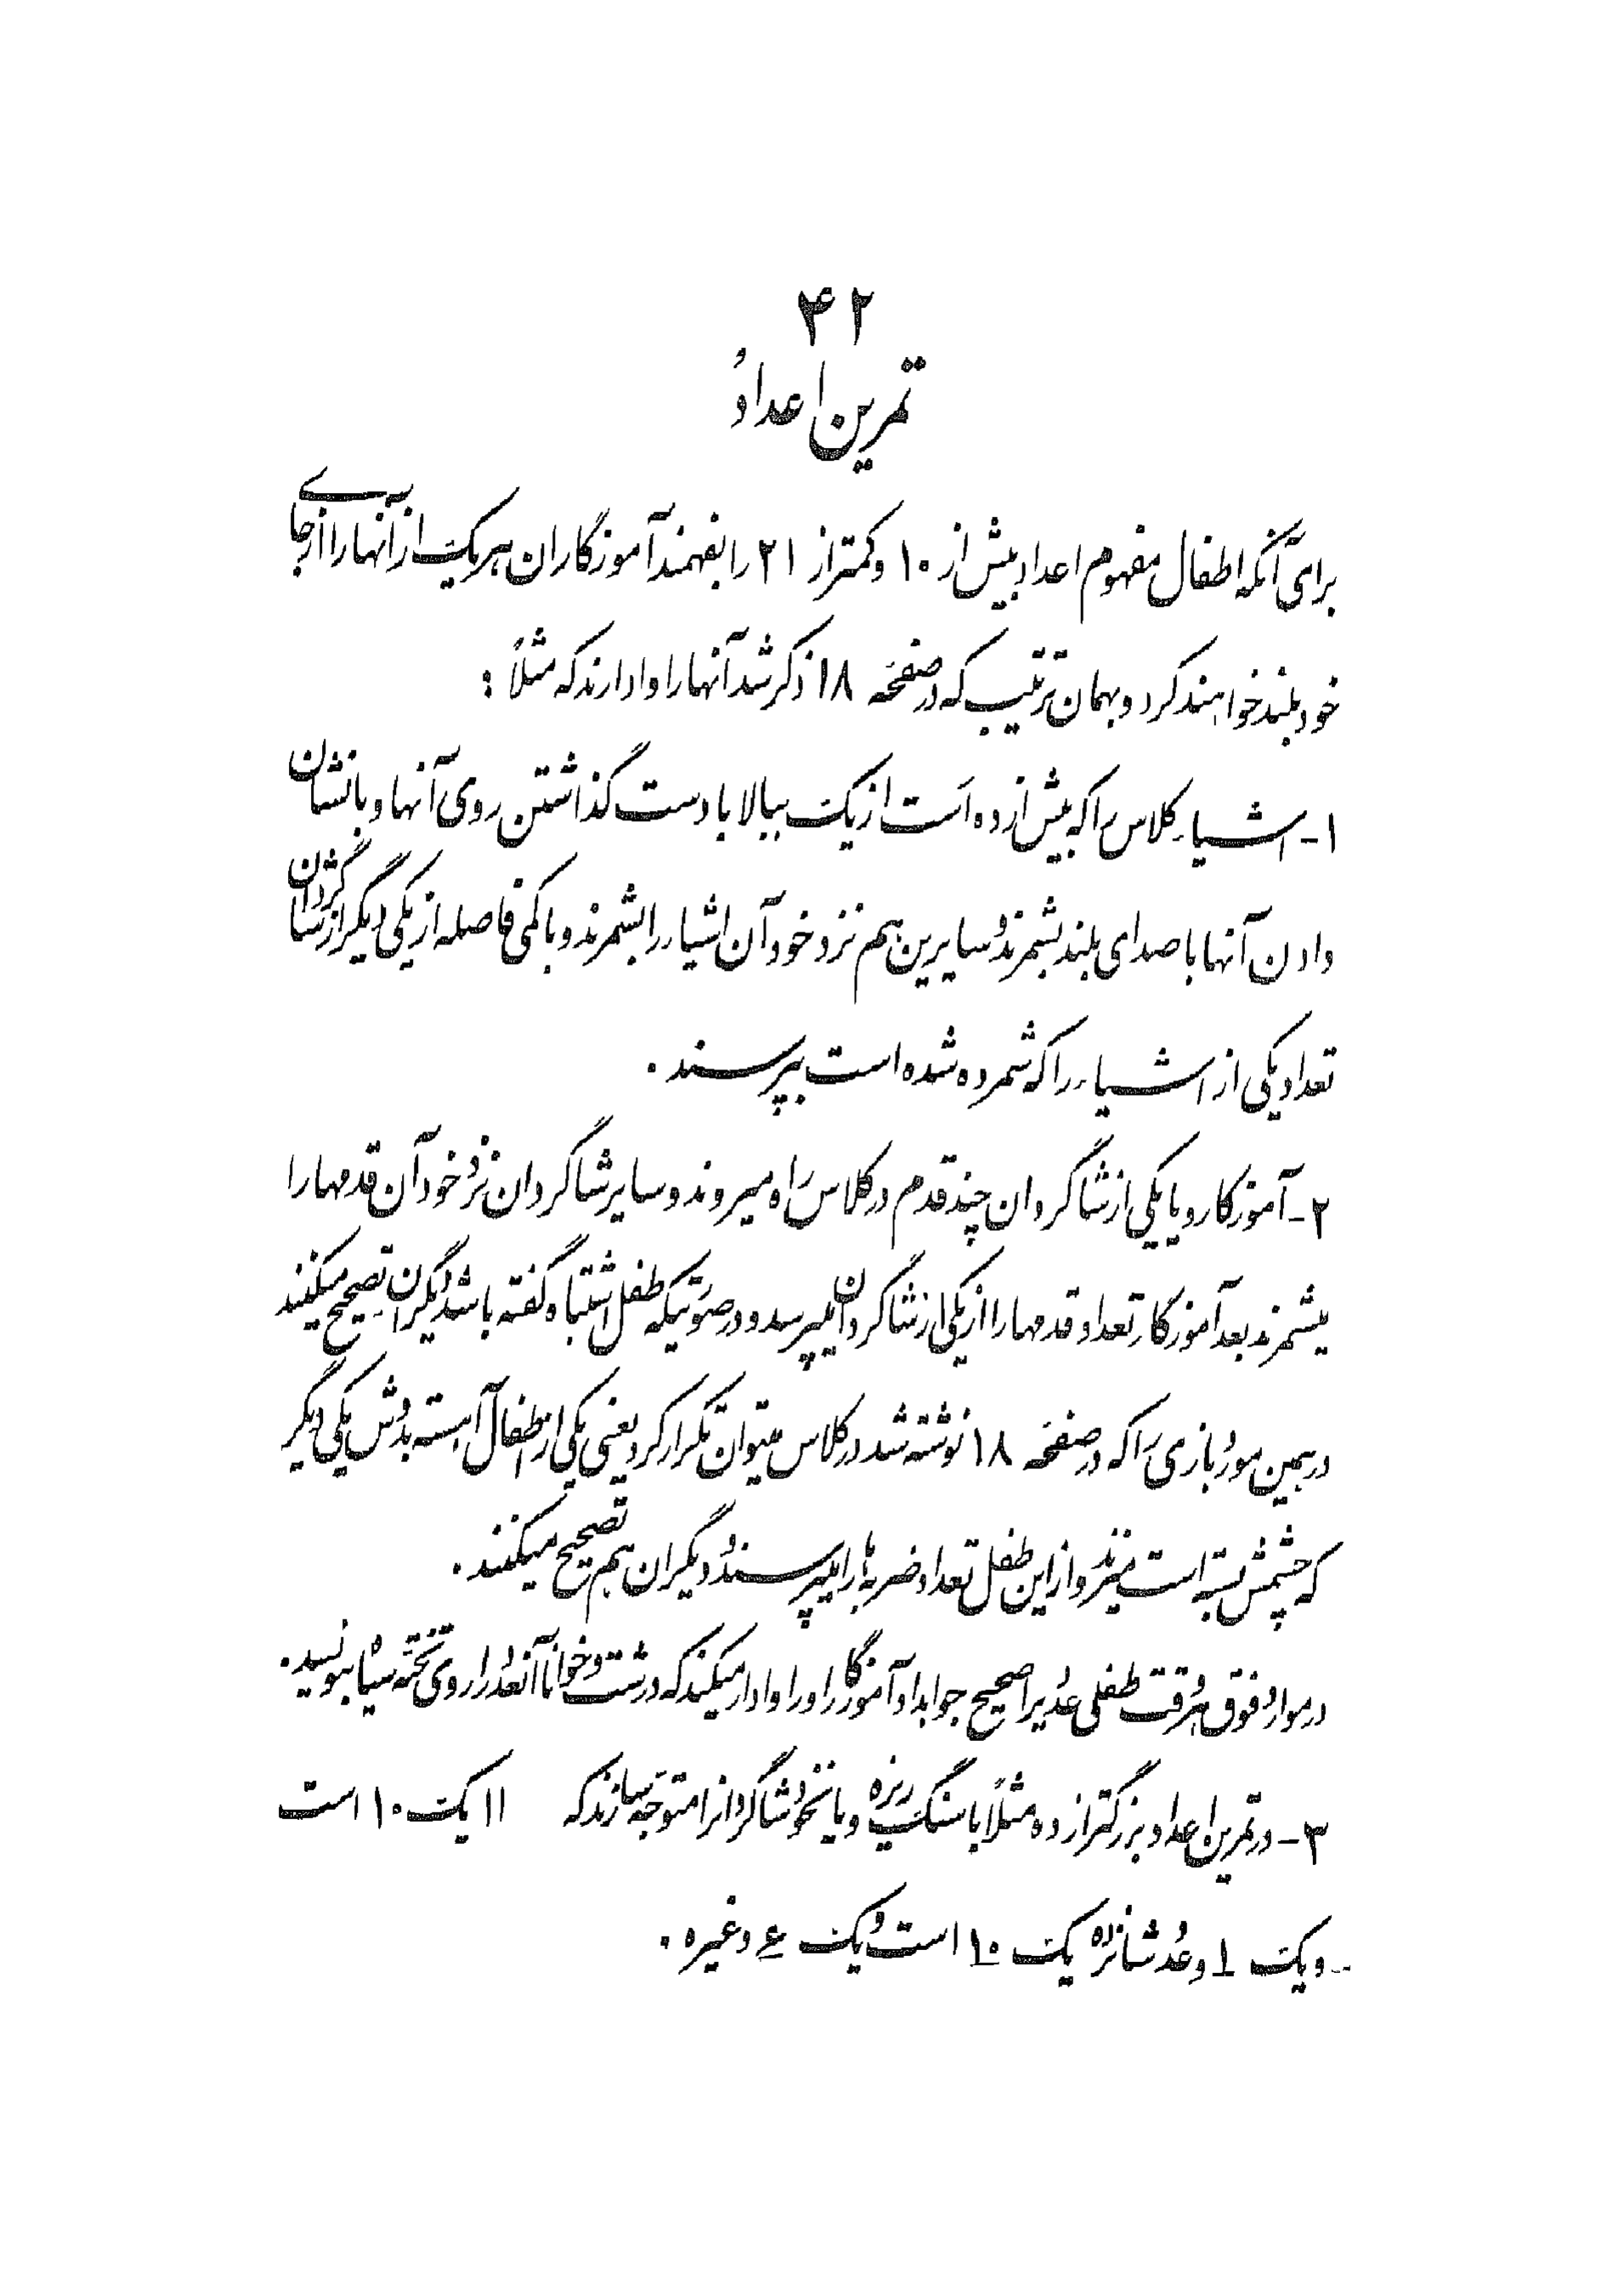 ۴۲
تمرین اعداد
برای آنکه اطفال مفهوم اعداد بیش از ۱۰ و کمتر از ۲۱ را بفهمند آموزگاران هر یک از آنها را از جای
خود بلند خواهند کرد و بهمان ترتیب که در صفحه ۱۸ ذکر شد آنها را وادارند که مثلاً :
۱- اشیاء کلاس را که بیش از ده است از یک ببالا با دست گذاشتن روی آنها و با نشان
دادن آنها با صدای بلند بشمرند و سایرین هم نزد خود آن اشیاء را بشمرند و با کمی فاصله از یکی دیگر از شاگردان
تعداد یکی از اشیاء را که شمرده شده است بپرسند .
۲- آموزگار و یا یکی از شاگردان چند قدم در کلاس راه میروند و سایر شاگردان نزد خود آن قدمها را
میشمرند بعد آموزگار تعداد قدمها را از یکی از شاگردان میپرسد و در صورتیکه طفل اشتباه گفته باشد دیگران تصحیح میکنند
در همین مورد بازی را که در صفحه ۱۸ نوشته شد در کلاس میتوان تکرار کرد یعنی یکی از اطفال آهسته بدوش یکی دیگر
که چشمش بسته است میزند و از این طفل تعداد ضربه ها را میپرسند و دیگران هم تصحیح میکنند .
در موارد فوق هر وقت طفلی عدد یرا صحیح جواب داد آموزگار او را وادار میکند که درشت و خوانا آنعدد را روی تخته سیاه بنویسد .
۳- در تمرین اعداد بزرگتر از ده مثلاً با سنگ ریزه و یا نخود شاگردانرا متوجه سازند که ۱۱ یک ۱۰ است
و یک ۱ و عدد شانزده یک ۱۰ است و یک ۶ و غیره .